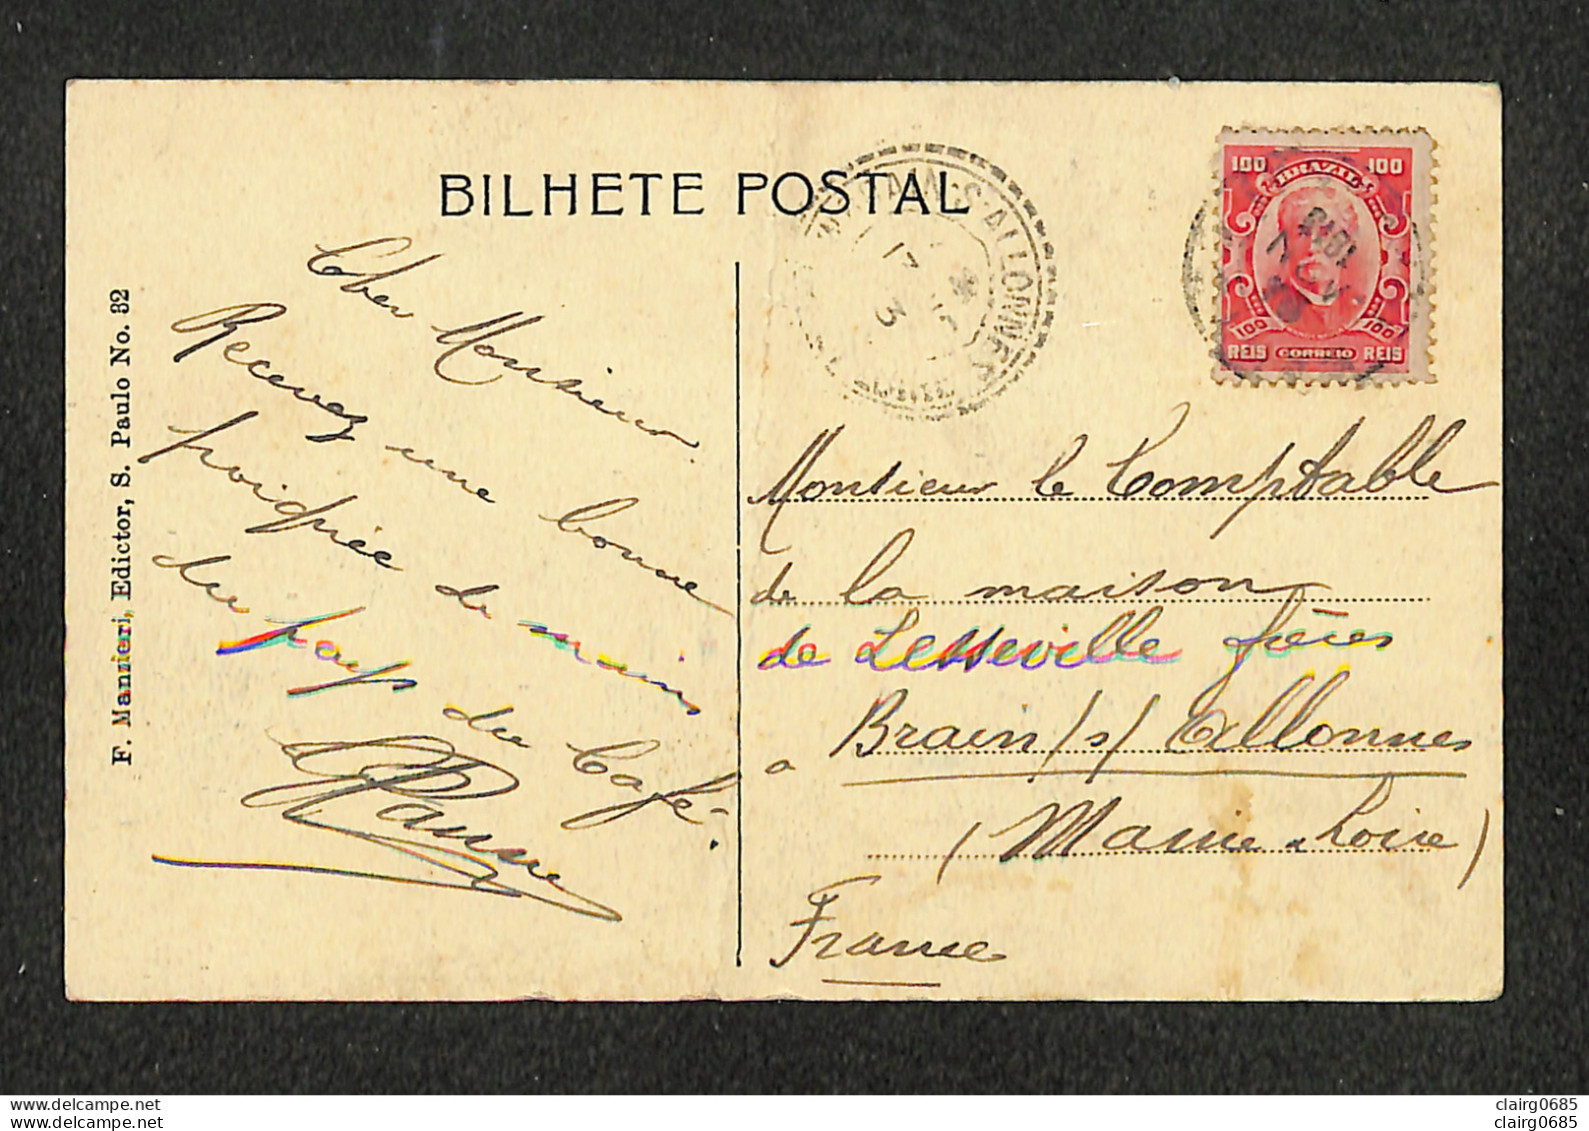 BILHETE POSTAL
Cher Monsieur
Recevez une bonne
poignée de main
du pays du Café.
F. Mannieri, Edictor, S. Paulo No. 32
BRAIN-S-ALLONNES
100 BRAZIL 100
100 100
REIS CORREIO REIS
Monsieur le Comptable
de la maison
de Lesseville frères
a Brain /s/ Allonnes
(Maine & Loire)
France
clairg0685
clairg0685